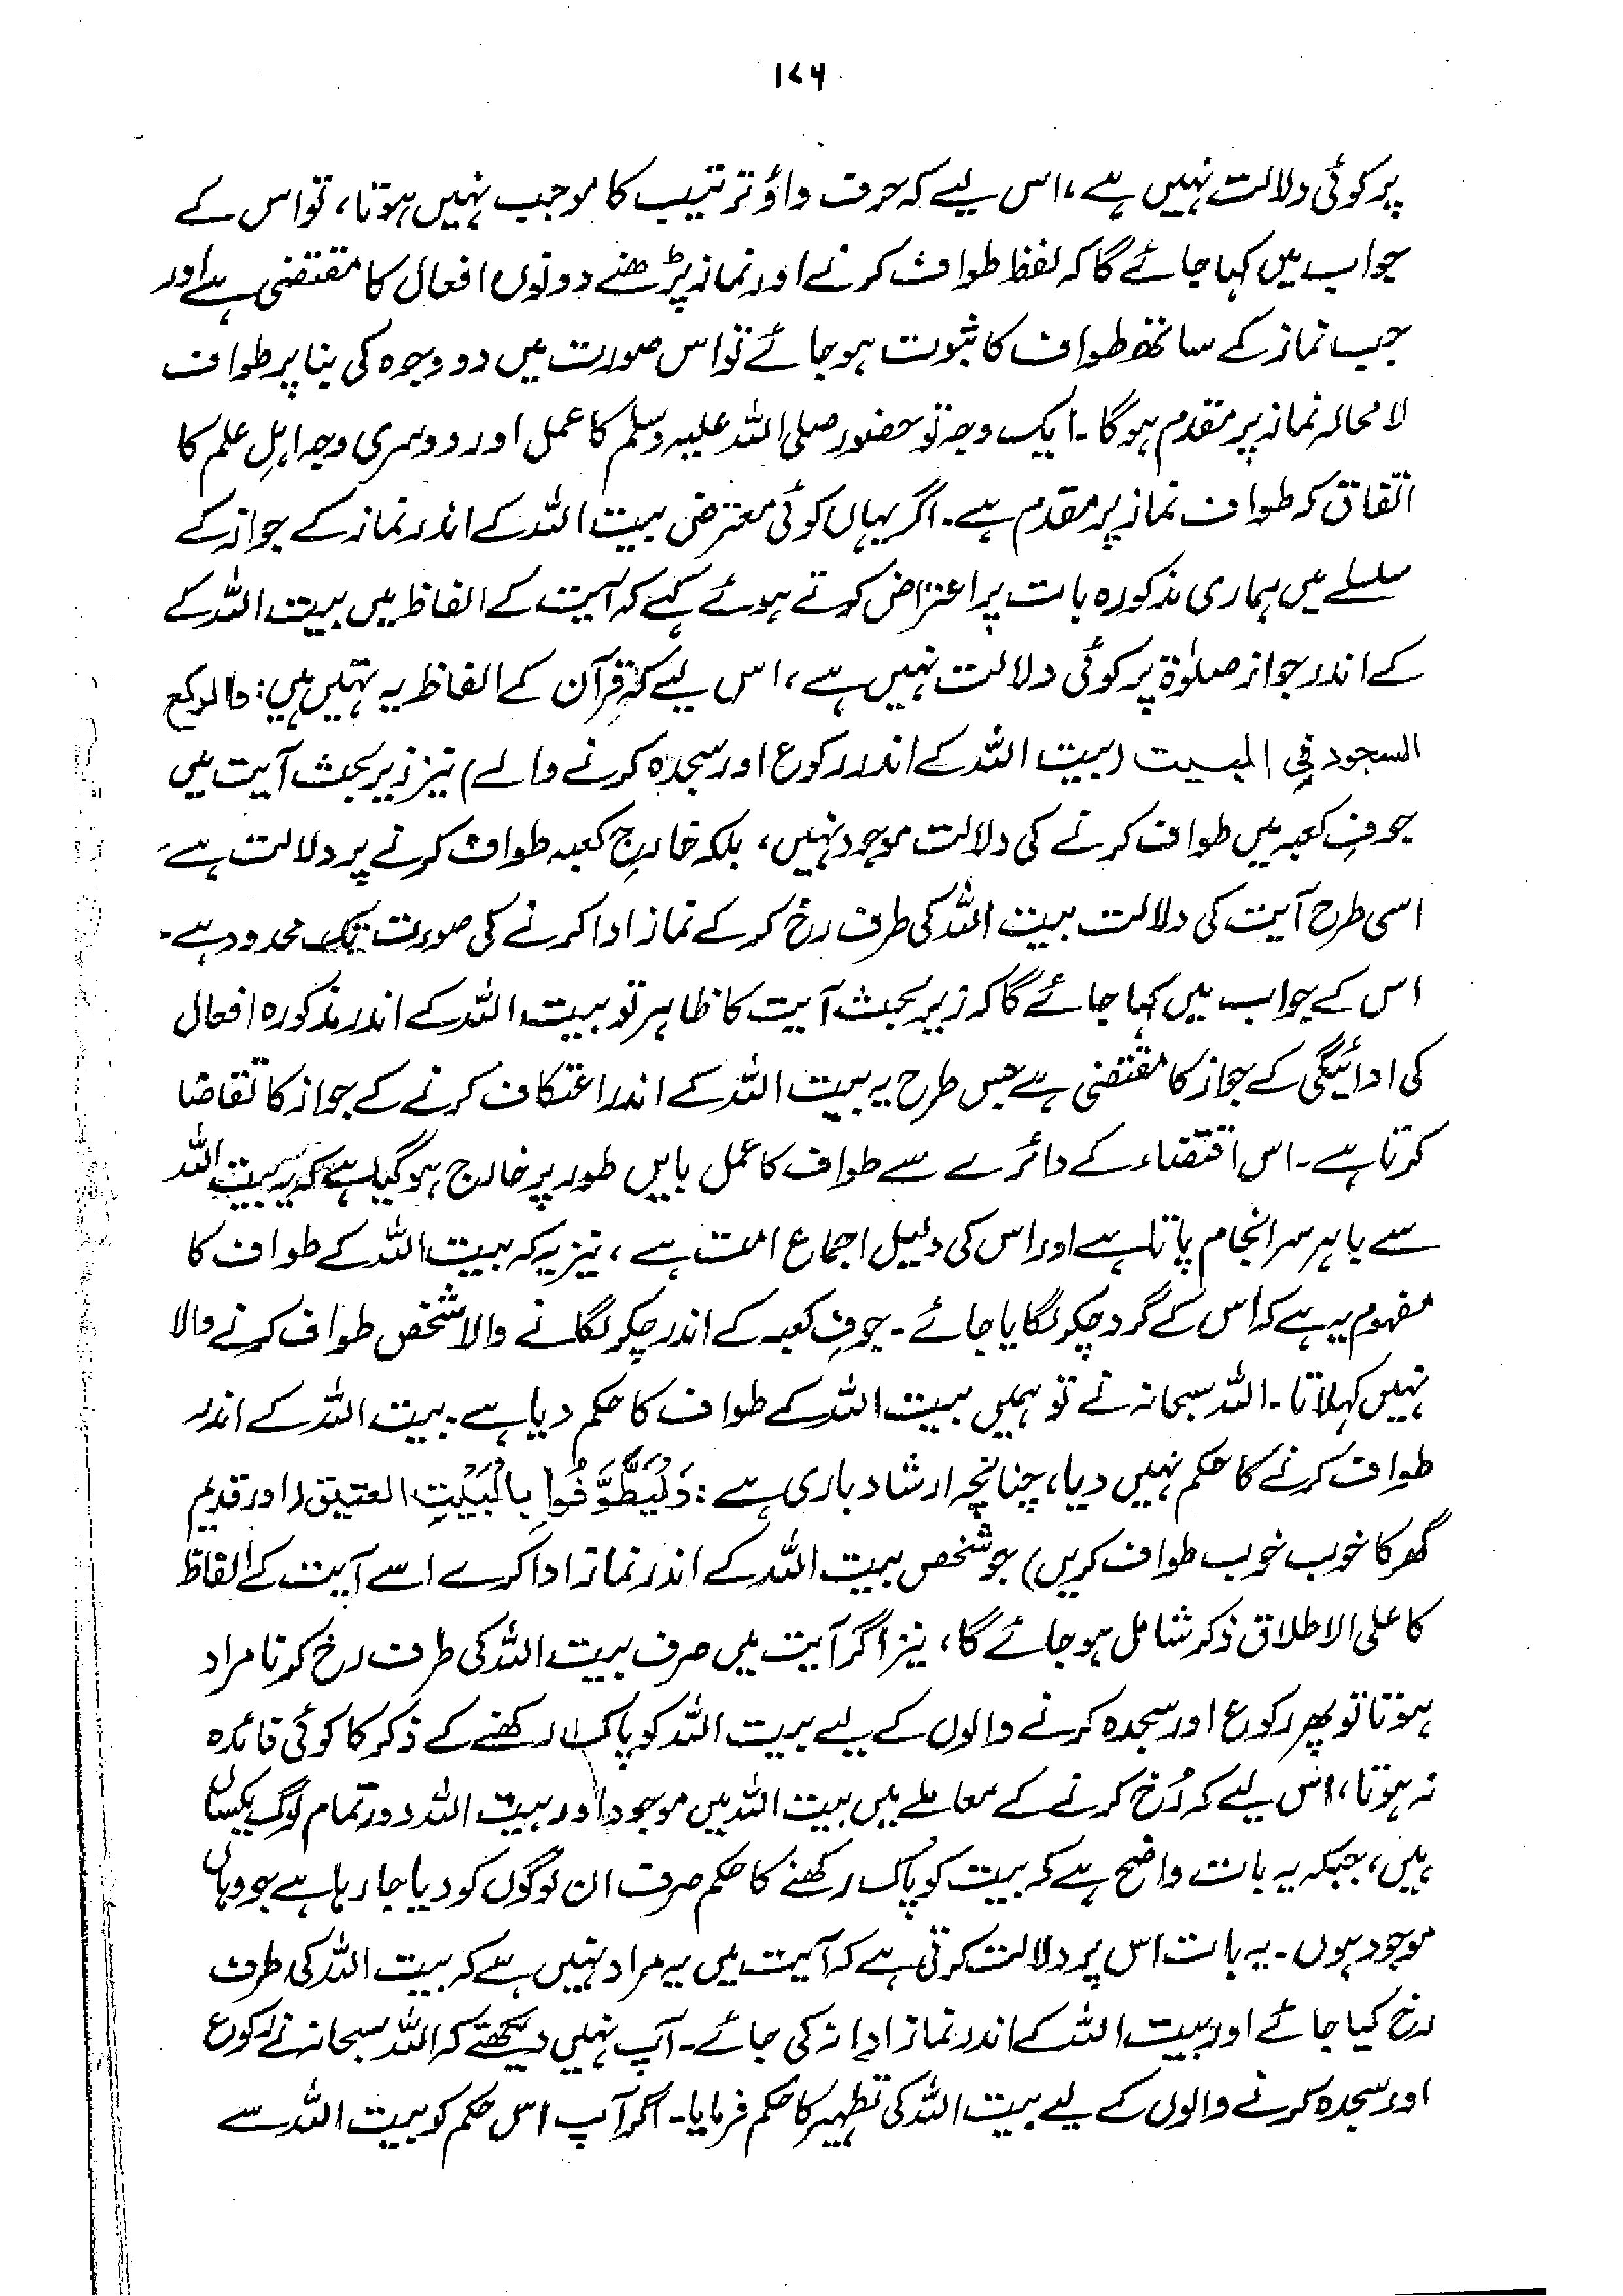 ۱۷۶
پر کوئی دلالت نہیں ہے، اس لیے کہ حرف واؤ ترتیب کا موجب نہیں ہوتا، تو اس کے
جواب میں کہا جائے گا کہ لفظ طواف کرنے اور نماز پڑھنے دونوں افعال کا مقتضی ہے اور
جب نماز کے ساتھ طواف کا ثبوت ہو جائے تو اس صورت میں دو وجوہ کی بنا پر طواف
لا محالہ نماز پر مقدم ہو گا۔ ایک وجہ تو حضور صلی اللہ علیہ وسلم کا عمل اور دوسری وجہ اہلِ علم کا
اتفاق کہ طواف نماز پر مقدم ہے۔ اگر یہاں کوئی معترض بیت اللہ کے اندر نماز کے جواز کے
سلسلے میں ہماری مذکورہ بات پر اعتراض کرتے ہوئے کہے کہ آیت کے الفاظ میں بیت اللہ کے
کے اندر جواز صلوٰۃ پر کوئی دلالت نہیں ہے، اس لیے کہ قرآن کے الفاظ یہ نہیں ہیں: والرکع
السجود فی البیت (بیت اللہ کے اندر رکوع اور سجدہ کرنے والے) نیز زیر بحث آیت میں
جوفِ کعبہ میں طواف کرنے کی دلالت موجود نہیں، بلکہ خارج کعبہ طواف کرنے پر دلالت ہے،
اسی طرح آیت کی دلالت بیت اللہ کی طرف رخ کر کے نماز ادا کرنے کی صورت تک محدود ہے۔
اس کے جواب میں کہا جائے گا کہ زیر بحث آیت کا ظاہر تو بیت اللہ کے اندر مذکورہ افعال
کی ادائیگی کے جواز کا مقتضی ہے جس طرح یہ بیت اللہ کے اندر اعتکاف کرنے کے جواز کا تقاضا
کرتا ہے۔ اس اقتضاء کے دائرے سے طواف کا عمل بایں طور پر خارج ہو گیا ہے کہ یہ بیت اللہ
سے باہر سر انجام پاتا ہے اور اس کی دلیل اجماع امت ہے، نیز یہ کہ بیت اللہ کے طواف کا
مفہوم یہ ہے کہ اس کے گرد چکر لگایا جائے۔ جوفِ کعبہ کے اندر چکر لگانے والا شخص طواف کرنے والا
نہیں کہلاتا۔ اللہ سبحانہ نے تو ہمیں بیت اللہ کے طواف کا حکم دیا ہے۔ بیت اللہ کے اندر
طواف کرنے کا حکم نہیں دیا، چنانچہ ارشاد باری ہے: وَلْيَطَّوَّفُوا بِالْبَيْتِ العتيق (اور قدیم
گھر کا خوب خوب طواف کریں) جو شخص بیت اللہ کے اندر نماز ادا کرے اسے آیت کے الفاظ
کا علی الاطلاق ذکر شامل ہو جائے گا، نیز اگر آیت میں صرف بیت اللہ کی طرف رخ کرنا مراد
ہوتا تو پھر رکوع اور سجدہ کرنے والوں کے لیے بیت اللہ کو پاک رکھنے کے ذکر کا کوئی فائدہ
نہ ہوتا، اس لیے کہ رُخ کرنے کے معاملے میں بیت اللہ میں موجود اور بیت اللہ دور تمام لوگ یکساں
ہیں، جبکہ یہ بات واضح ہے کہ بیت کو پاک رکھنے کا حکم صرف ان لوگوں کو دیا جا رہا ہے جو وہاں
موجود ہوں۔ یہ بات اس پر دلالت کرتی ہے کہ آیت میں یہ مراد نہیں ہے کہ بیت اللہ کی طرف
رخ کیا جائے اور بیت اللہ کے اندر نماز ادا نہ کی جائے۔ آپ نہیں دیکھتے کہ اللہ سبحانہ نے رکوع
اور سجدہ کرنے والوں کے لیے بیت اللہ کی تطہیر کا حکم فرمایا۔ اگر آپ اس حکم کو بیت اللہ سے